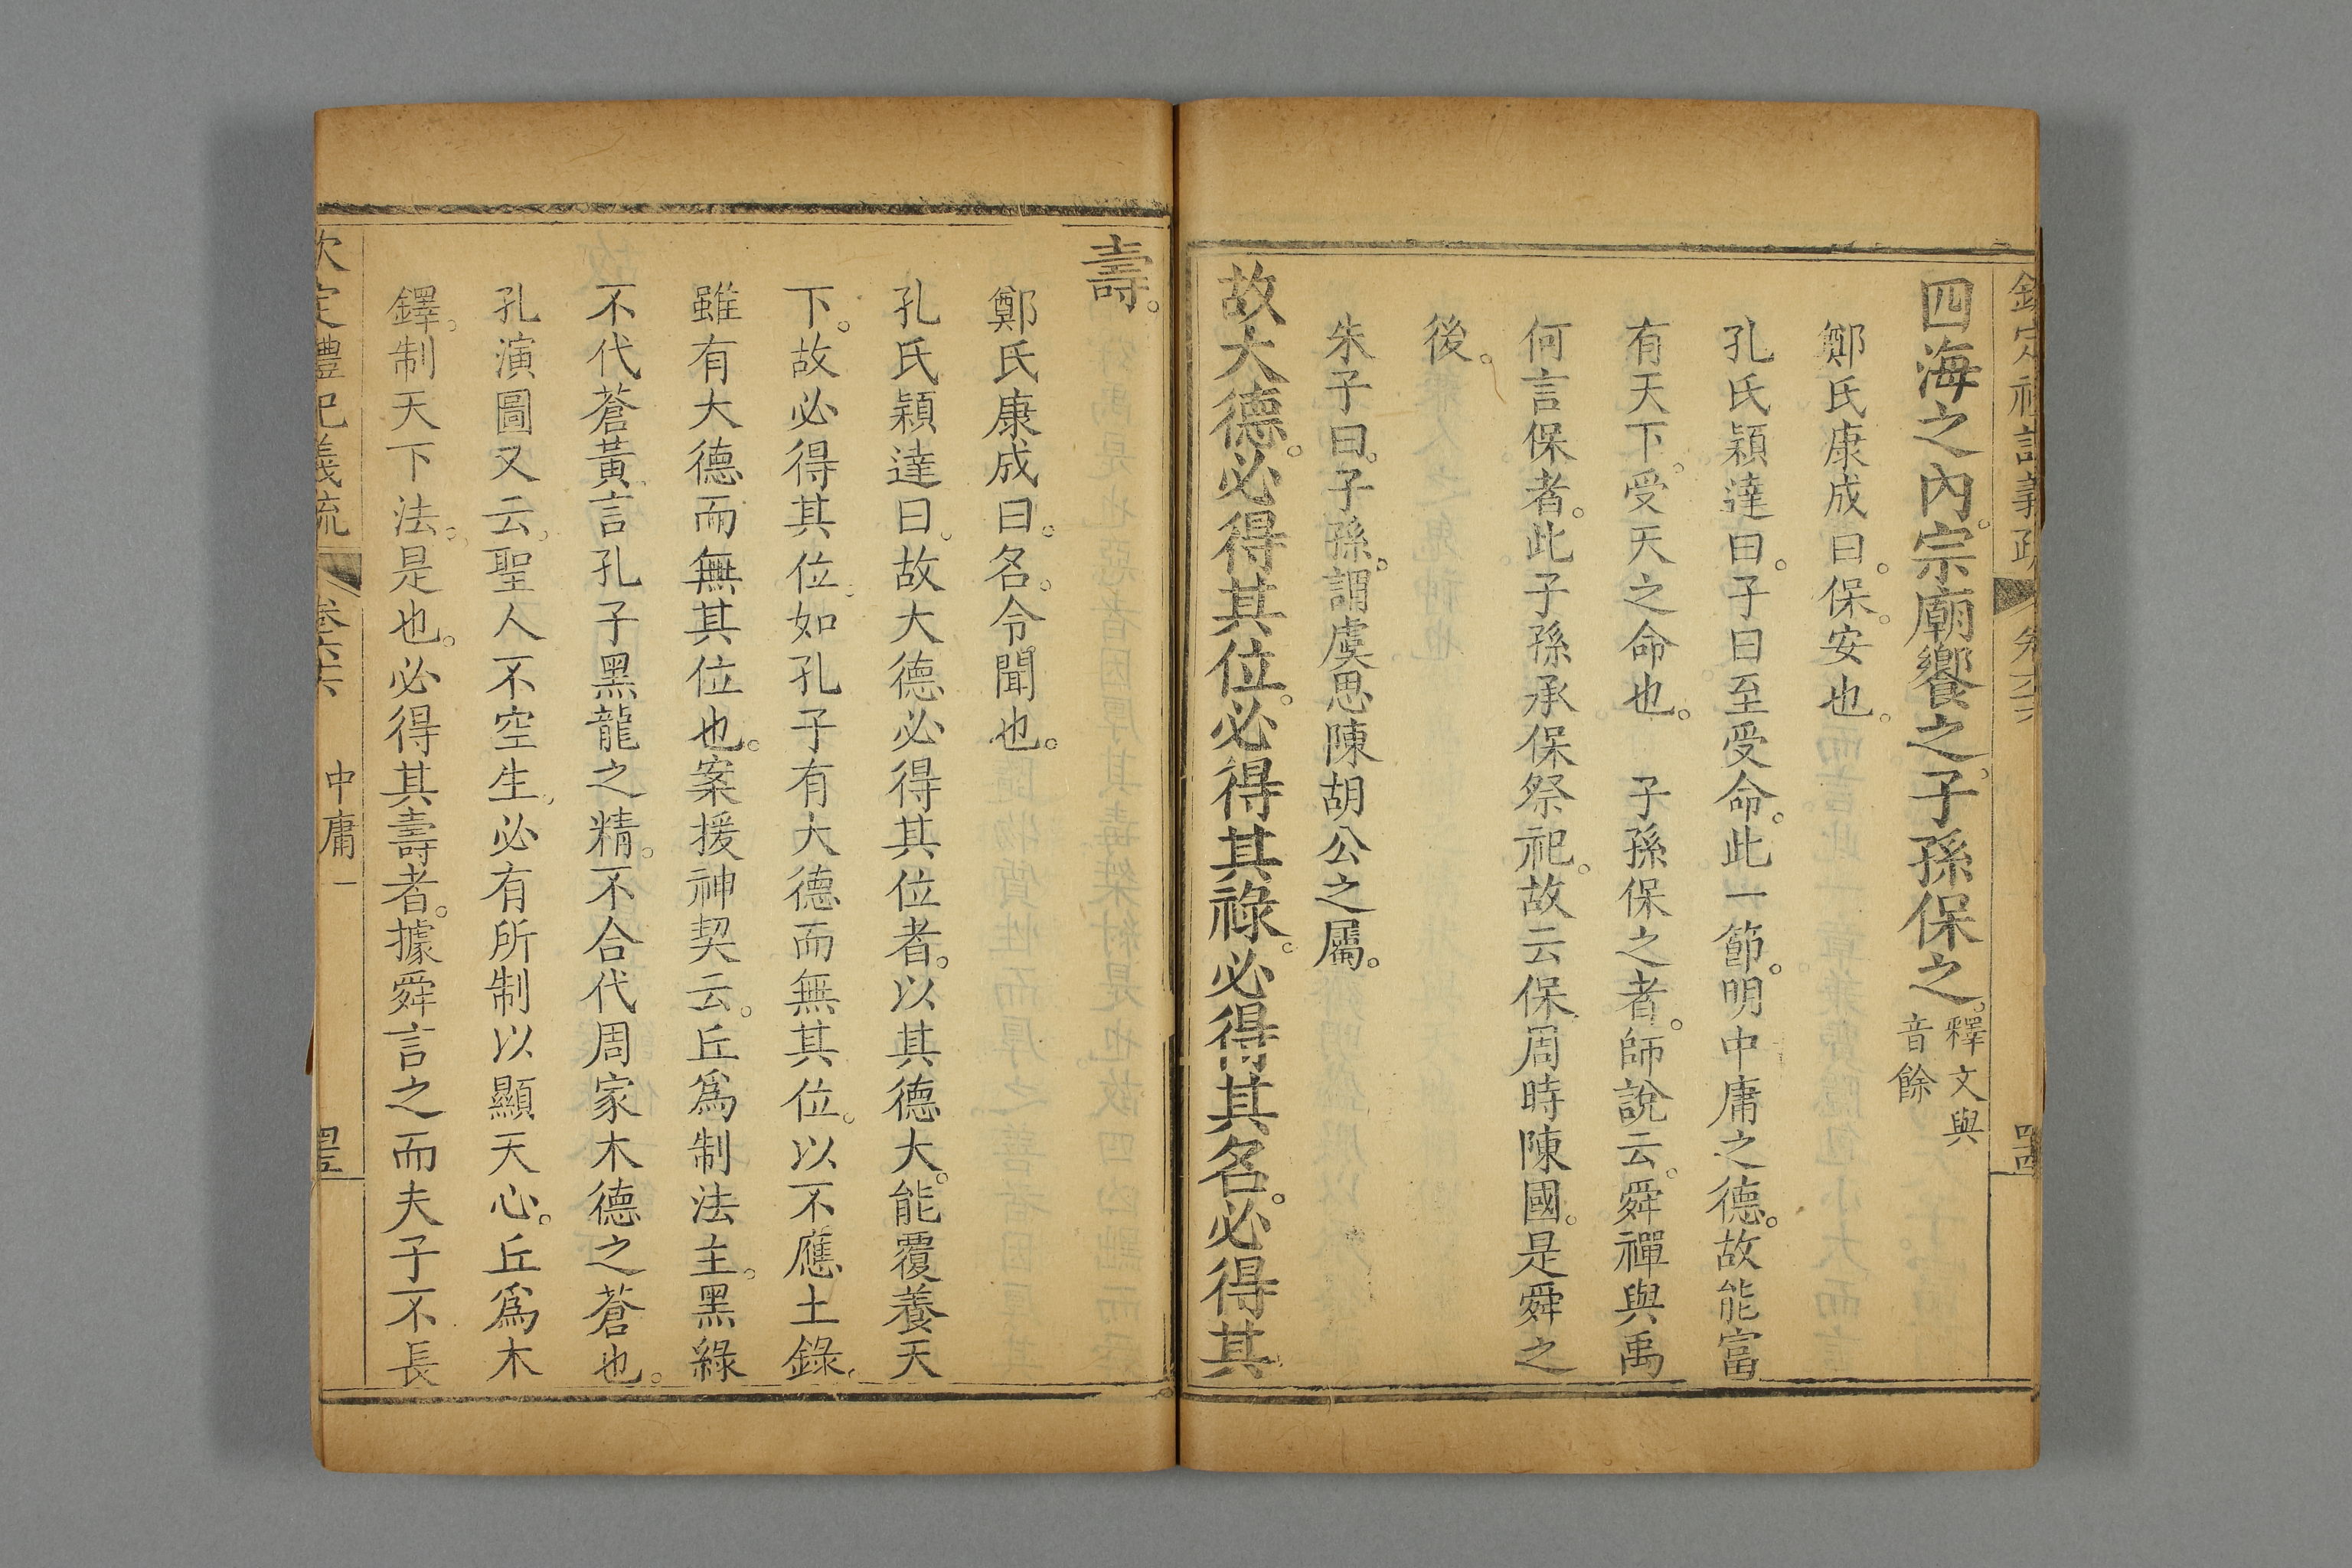 四海之內。宗廟饗之。子孫保之。釋文與
音餘
鄭氏康成曰。保。安也。
孔氏穎達曰。子曰至受命。此一節。明中庸之德。故能富
有天下。受天之命也。　子孫保之者。師說云。舜禪與禹
何言保者。此子孫承保祭祀。故云保。周時陳國。是舜之
後。
朱子曰。子孫。謂虞思陳胡公之屬。
故大德。必得其位。必得其祿。必得其名。必得其
壽。
鄭氏康成曰。名。令聞也。
孔氏穎達曰。故大德必得其位者。以其德大。能覆養天
下。故必得其位。如孔子有大德而無其位。以不應土錄。
雖有大德而無其位也。案援神契云。丘爲制法主。黑綠
不代蒼黃。言孔子黑龍之精。不合代周家木德之蒼也。
孔演圖又云。聖人不空生。必有所制以顯天心。丘爲木
鐸。制天下法。是也。必得其壽者。據舜言之。而夫子不長
欽定禮記義疏　卷六六　中庸一